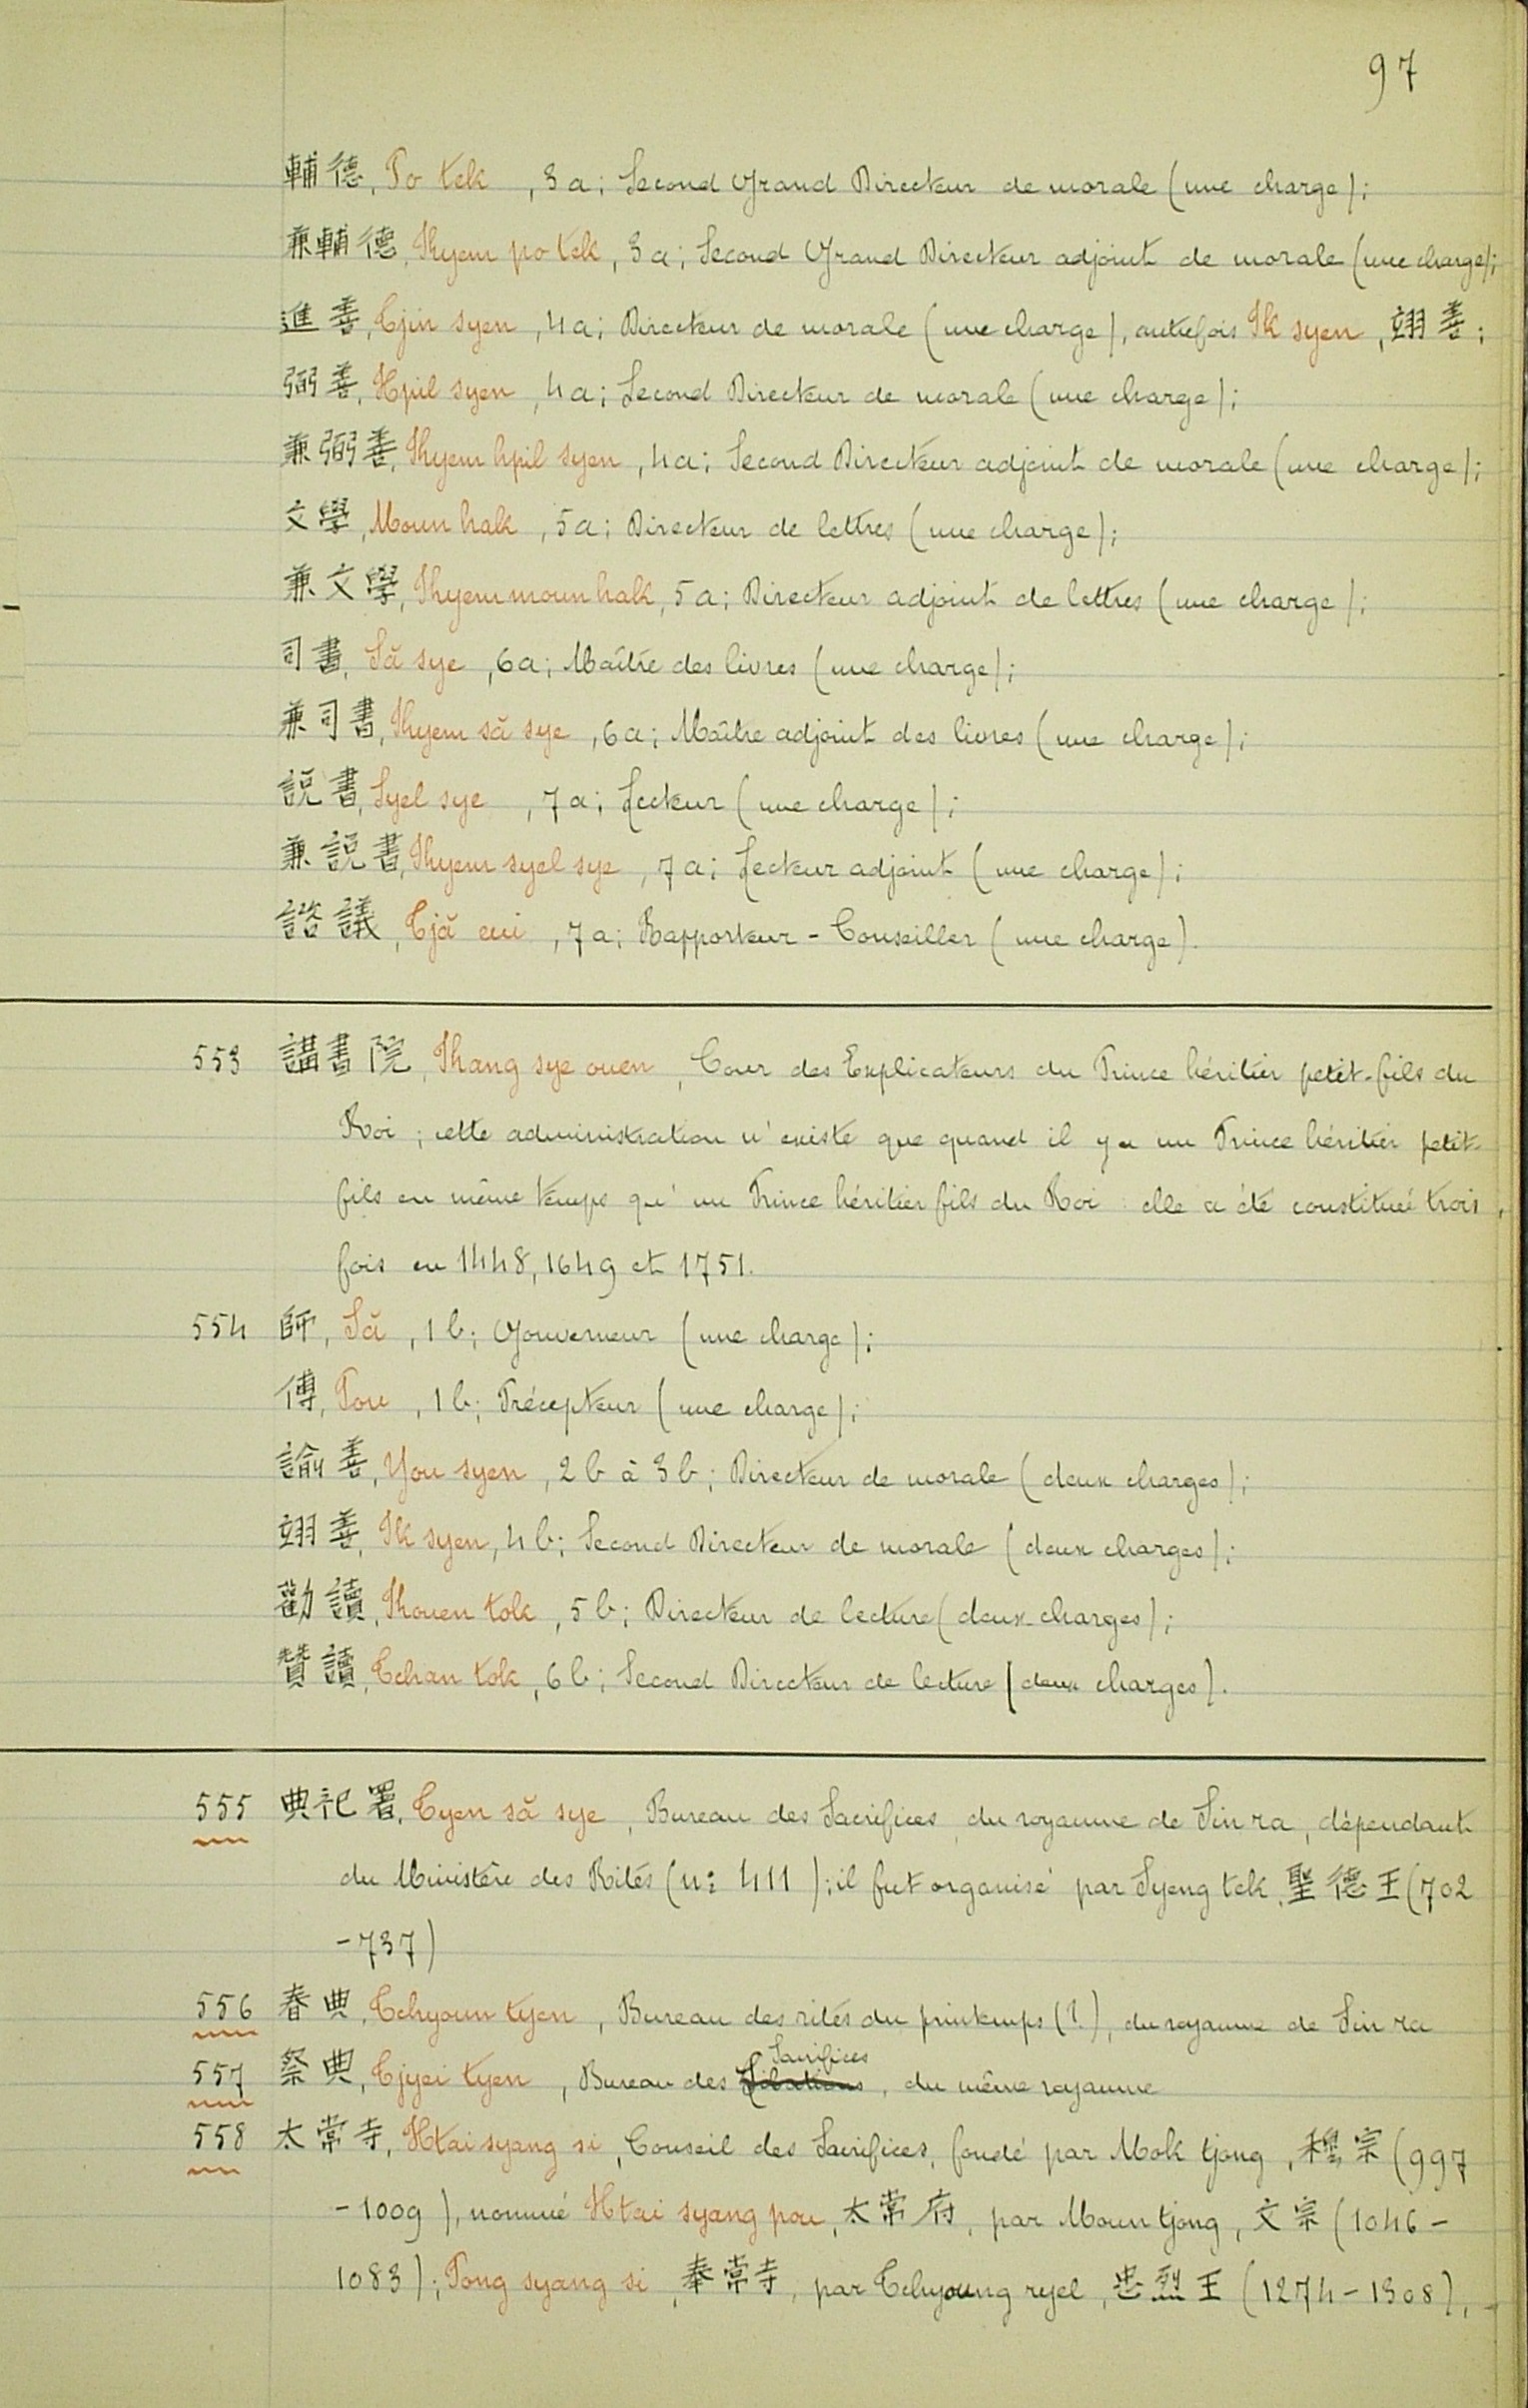 97
輔德, Po tek, 3a; Second Grand Directeur de morale (une charge);
兼輔德, Khyem po tek, 3a; Second Grand Directeur adjoint de morale (une charge);
進善, Tjin syen, 4a; Directeur de morale (une charge), autrefois Ik syen, 翊善;
弼善, Hpil syen, 4a; Second Directeur de morale (une charge);
兼弼善, Khyem hpil syen, 4a; Second Directeur adjoint de morale (une charge);
文學, Moun hak, 5a; Directeur de lettres (une charge);
兼文學, Khyem moun hak, 5a; Directeur adjoint de lettres (une charge);
司書, Să sye, 6a; Maître des livres (une charge);
兼司書, Khyem să sye, 6a; Maître adjoint des livres (une charge);
說書, Syel sye, 7a; Lecteur (une charge);
兼說書, Khyem syel sye, 7a; Lecteur adjoint (une charge);
諮議, Tjă eui, 7a; Rapporteur-Conseiller (une charge).
553 講書院, Khang sye ouen, Cour des Explicateurs du Prince héritier petit-fils du
Roi; cette administration n'existe que quand il y a un Prince héritier petit-
fils en même temps qu'un Prince héritier fils du Roi: elle a été constituée trois
fois en 1448, 1649 et 1751.
554 師, Să, 1b; Gouverneur (une charge);
傅, Pou, 1b; Précepteur (une charge);
諭善, You syen, 2b à 3b; Directeur de morale (deux charges);
翊善, Ik syen, 4b; Second Directeur de morale (deux charges);
勸讀, Khouen tok, 5b; Directeur de lecture (deux charges);
贊讀, Tchan tok, 6b; Second Directeur de lecture (deux charges).
555 典祀署, Tyen să sye, Bureau des Sacrifices, du royaume de Sin ra, dépendant
du Ministère des Rites (nº 411); il fut organisé par Syeng tek, 聖德王 (702
-737)
556 春典, Tchyoun tyen, Bureau des rites du printemps (?), du royaume de Sin ra
557 祭典, Tjyei tyen, Bureau des Libations Sacrifices, du même royaume
558 太常寺, Htai syang si, Conseil des Sacrifices, fondé par Mok tjong, 穆宗 (997
-1009), nommé Htai syang pou, 太常府, par Moun tjong, 文宗 (1046-
1083); Pong syang si, 奉常寺, par Tchyoung ryel, 忠烈王 (1274-1308),